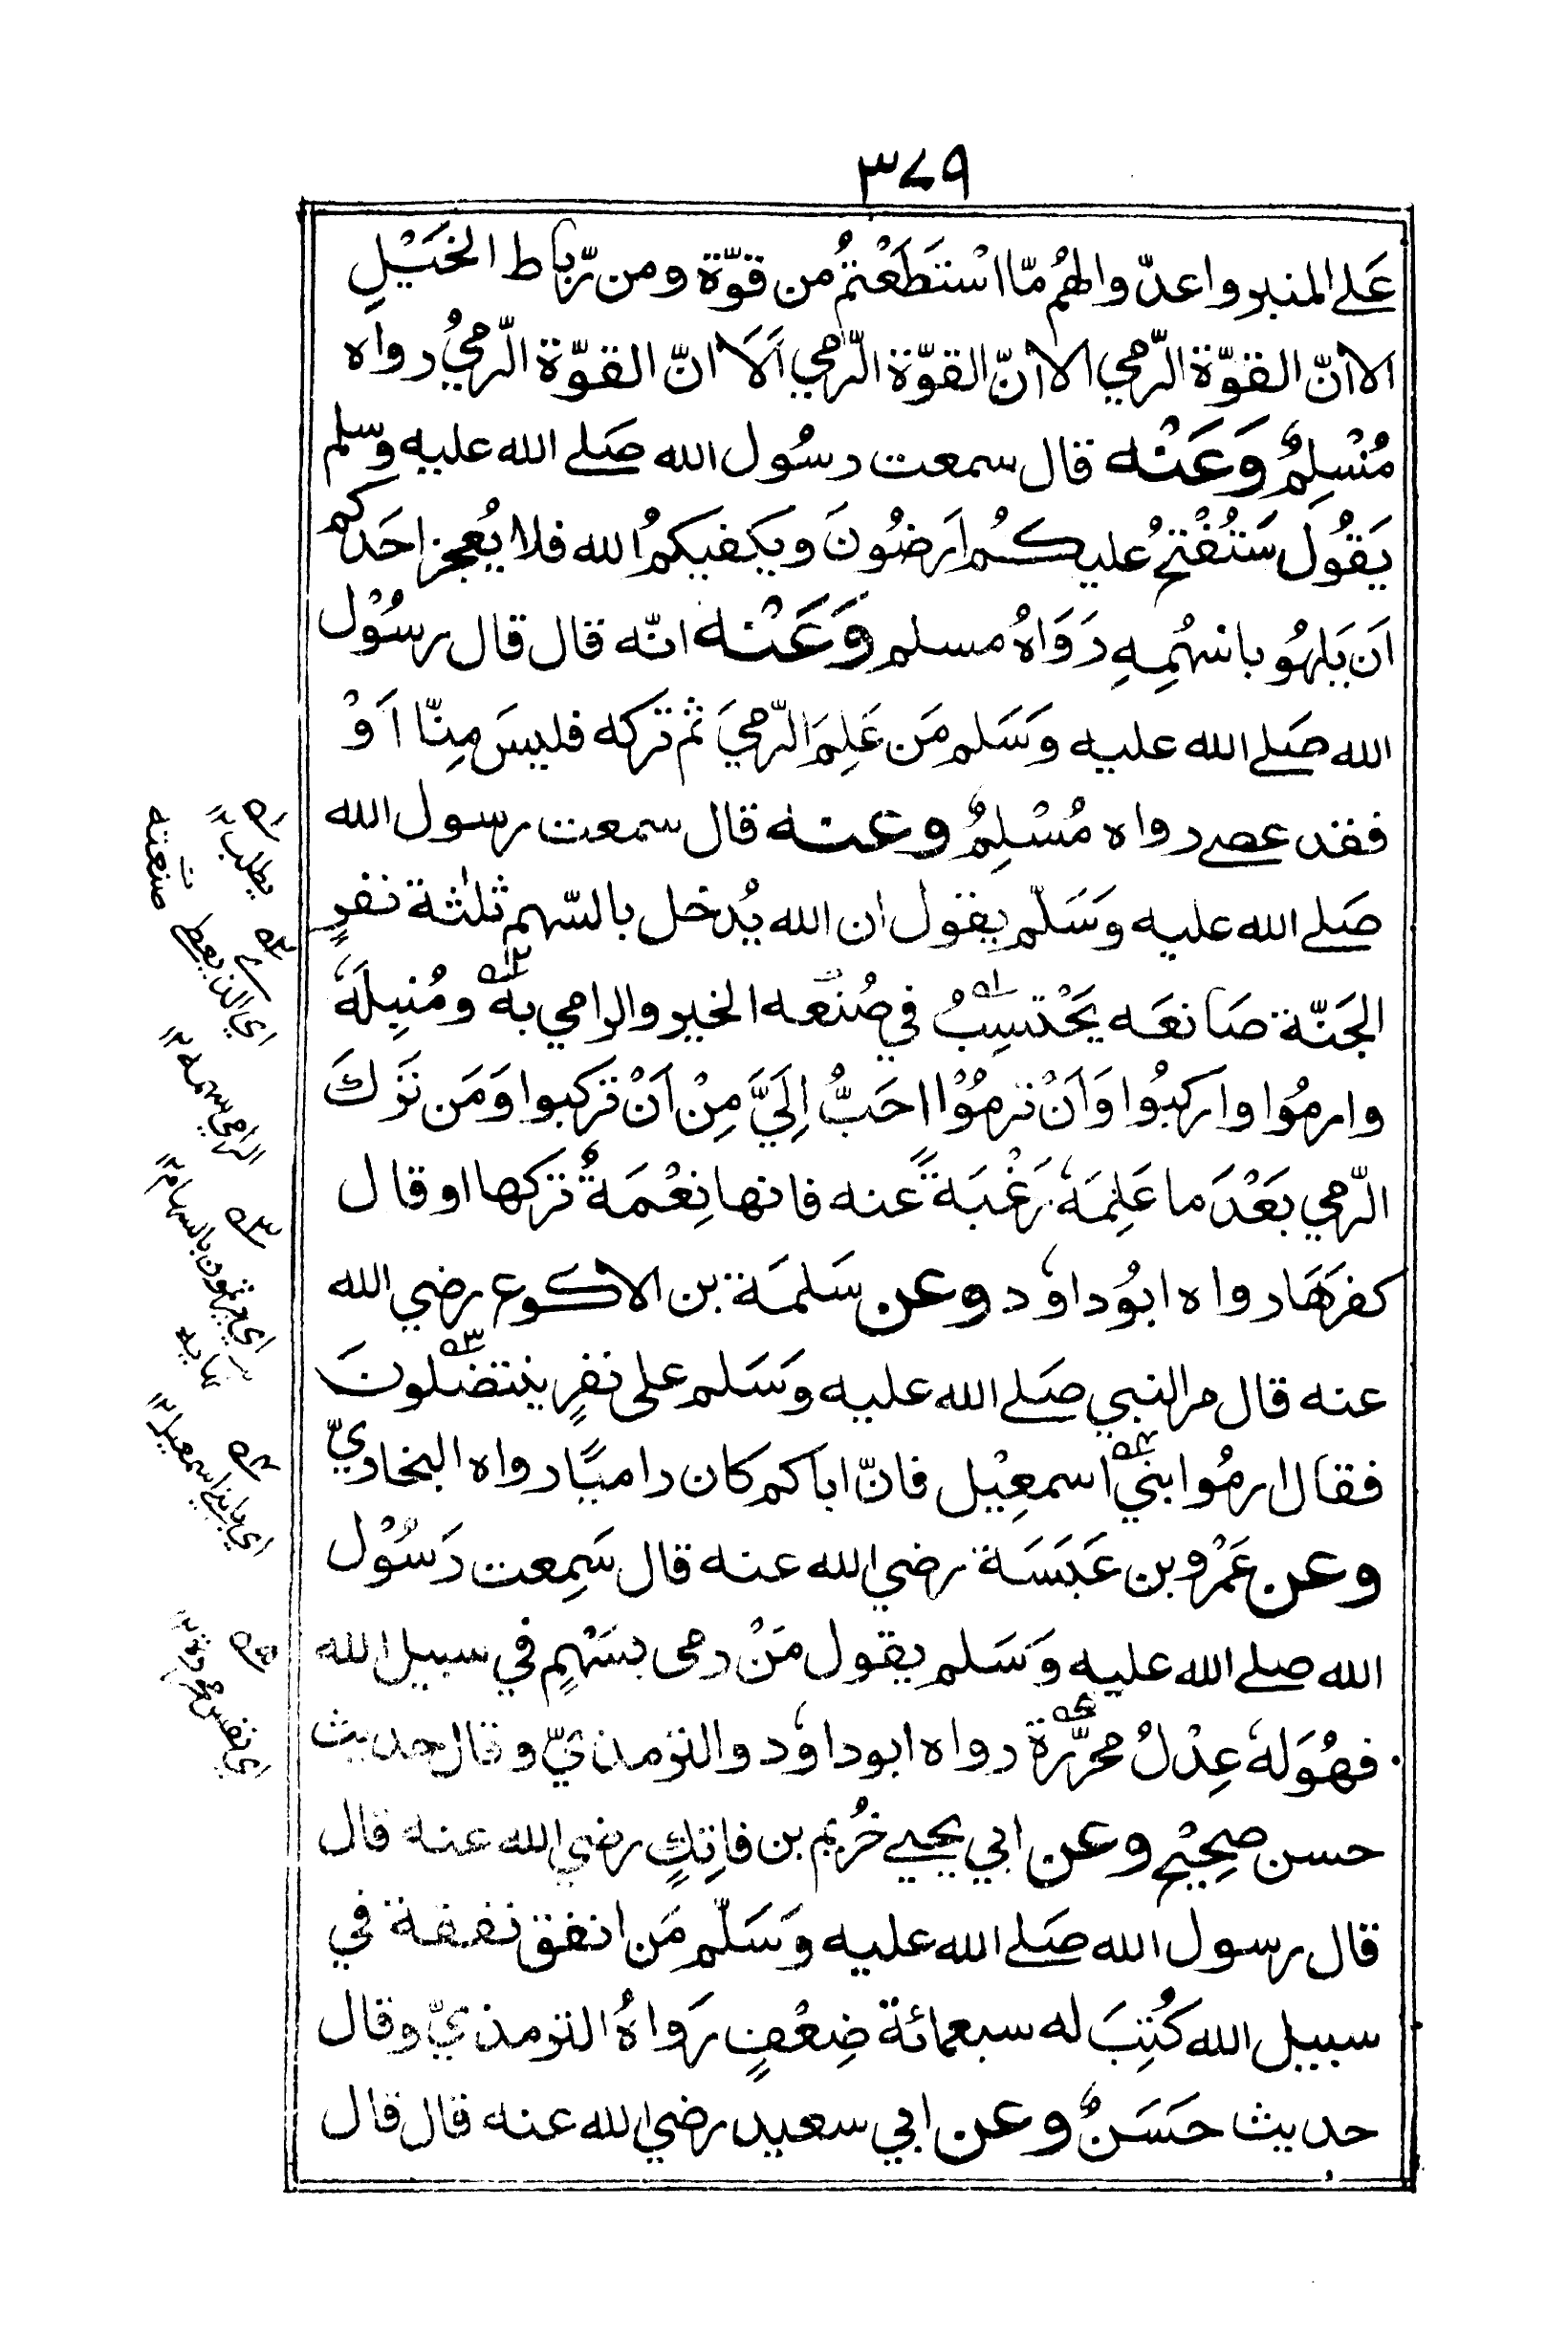 ٣٧٩
عَلى المنبر واعدّوا لهُم مّا اسْتَطَعْتمُ من قوّة ومن رّباط الخَيْلِ
الا انّ القوّة الرّمي الا انّ القوّة الرّمي اَلَا انّ القوّة الرّميُ رواه
مُسْلِمٌ وَعَنْه قال سمعت رسُول الله صَلى الله عليه وسلم
يَقُولُ سَتُفْتَحُ عليكُم اَرَضُونَ ويكفيكمُ الله فلا يُعجز احَدكم
اَن يَلهُو باسْهُمِهِ رَوَاهُ مسلم وَعَنْه انّه قال قال رسُوْل
الله صَلى الله عليه وَسَلم مَن عَلِمَ الرّميَ ثم تَركه فليسَ مِنّا اَوْ
فقد عصى رواه مُسْلِمٌ وعنه قال سمعت رسول الله
صَلى الله عليه وَسَلّم يقول ان الله يُدخل بالسّهم ثلٰثة نفرٍ
الجَنّة صَانعَه يَحْتسِبُ في صُنعه الخير والرامي به ومُنبِلَهٗ
وارمُوا واركبُوا وَاَنْ ترمُوْا احَبُّ اِلَيَّ مِنْ اَنْ تركبوا وَمَن تَرَكَ
الرّمي بَعْدَ ما عَلِمَهٗ رَغْبَةً عنه فانها نِعْمَةٌ تركها او قال
كفرَهَا رواه ابُو داود وعن سَلمَة بن الاكوع رضي الله
عنه قال مر النبي صَلى الله عليه وَسَلم على نفرٍ ينتضلونَ
فقال ارمُوا بني اسمعِيْل فانّ اباكم كان راميًا رواه البخاريّ
وعن عَمْرو بن عَبَسَة رضي الله عنه قال سَمِعت رَسُوْل
الله صلى الله عليه وَسَلم يقول مَنْ رمى بسَهْمٍ في سبيل الله
فهُوَ لهٗ عِدْلُ محرَّرة رواه ابو داود والترمذيّ وقال حديث
حسن صحِيْح وعن ابي يحيى خُريم بن فاتِكٍ رضي الله عنه قال
قال رسول الله صَلى الله عليه وَسَلّم مَن انفق نفقة في
سبيل الله كُتِبَ له سبعمائة ضِعْفٍ رَوَاهُ الترمذيّ وقال
حديث حَسَنٌ وعن ابي سعيد رضي الله عنه قال قال
ا يطلب ١٢
صنعته
٢ اي الذي يعطي
الرامي سهمه ١٢
٣ اي يرتمون بالسهام ١٢
نهايه
٤ اي يا بني اسمعيل ١٢